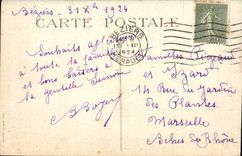 Béziers - 31 Xbre 1924
CARTE POSTALE
BÉZIERS
31 XII
1924
HÉRAULT
Souhaits
à toute la famille
et bons baisers à
la gentille Simone
Familles
et Izard
14 Rue du Jardin
des Plantes
Marseille
Bches du Rhône